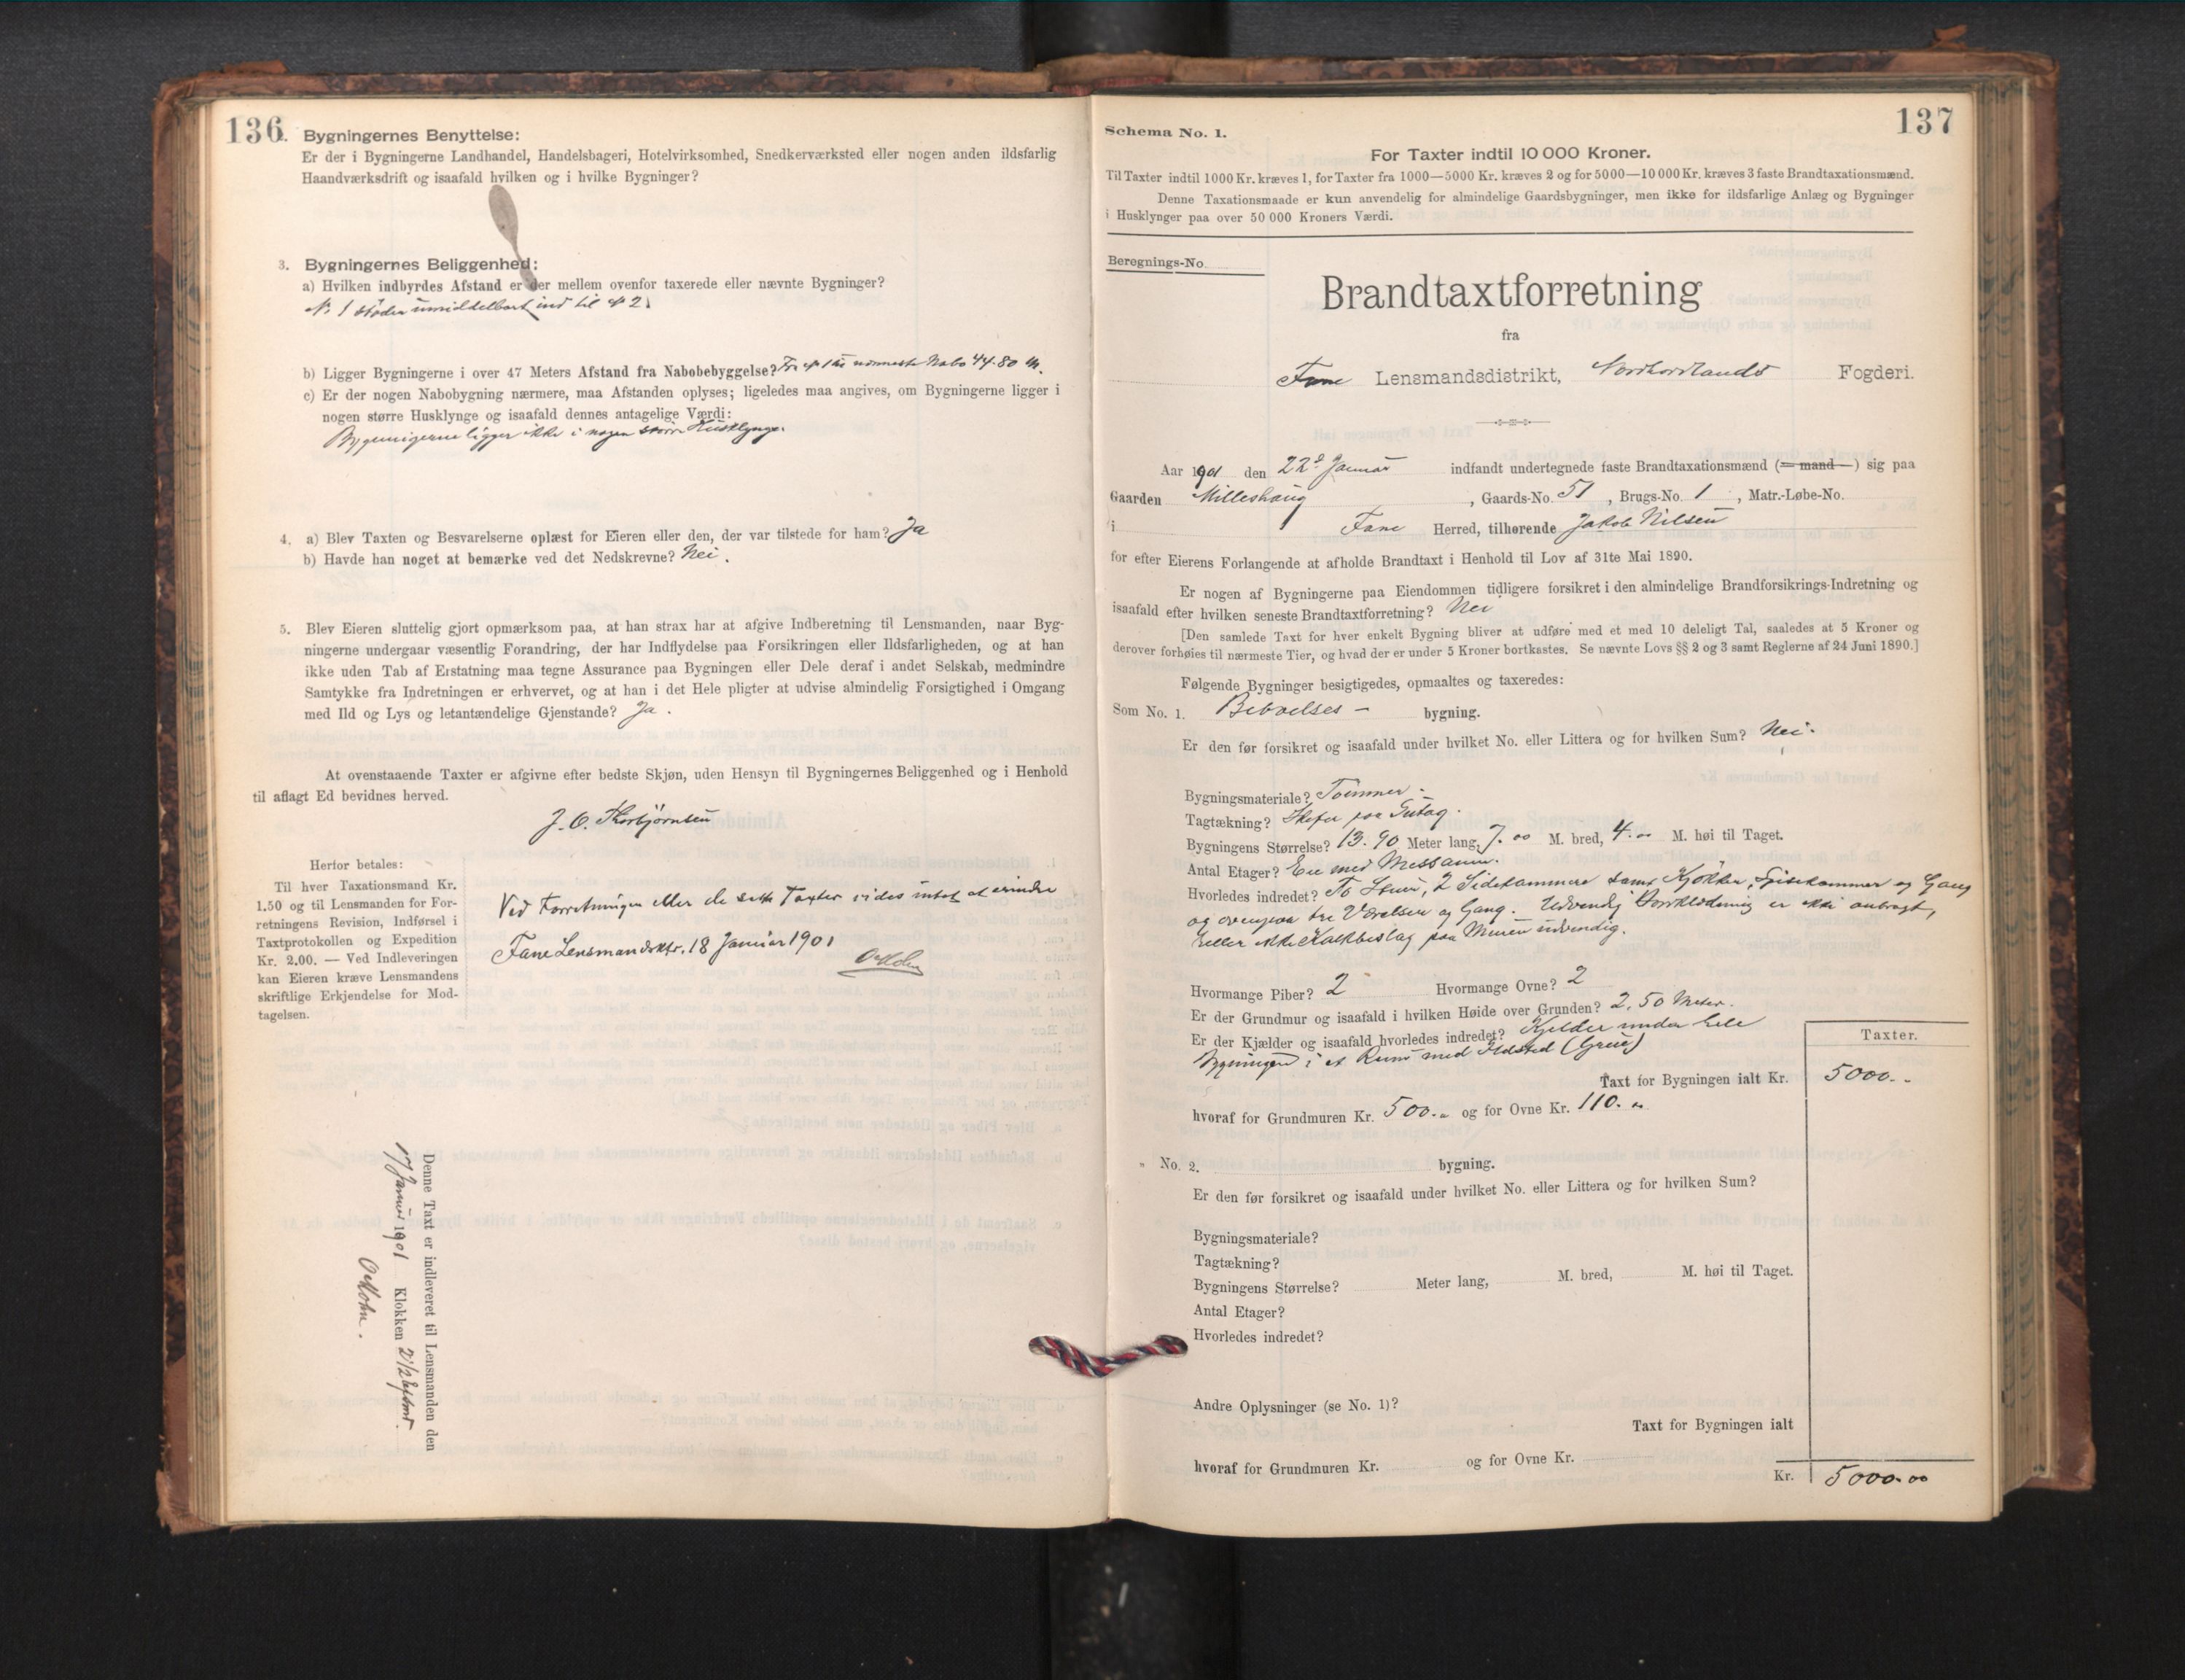 136.
Bygningernes Benyttelse:
Er der i Bygningerne Landhandel, Handelsbageri, Hotelvirksomhed, Snedkerværksted eller nogen anden ildsfarlig
Haandværksdrift og isaafald hvilken og i hvilke Bygninger?
3. Bygningernes Beliggenhed:
a) Hvilken indbyrdes Afstand er der mellem ovenfor taxerede eller nævnte Bygninger?
N. 1 støder umiddelbart ind til N 2.
b) Ligger Bygningerne i over 47 Meters Afstand fra Nabobebyggelse? Fra N 1 til nærmeste Nabo 44.80 m.
c) Er der nogen Nabobygning nærmere, maa Afstanden oplyses; ligeledes maa angives, om Bygningerne ligger i
nogen større Husklynge og isaafald dennes antagelige Værdi:
Bygningerne ligger ikke i nogen større Husklynge.
4. a) Blev Taxten og Besvarelserne oplæst for Eieren eller den, der var tilstede for ham? Ja
b) Havde han noget at bemærke ved det Nedskrevne? Nei.
5. Blev Eieren sluttelig gjort opmærksom paa, at han strax har at afgive Indberetning til Lensmanden, naar Byg-
ningerne undergaar væsentlig Forandring, der har Indflydelse paa Forsikringen eller Ildsfarligheden, og at han
ikke uden Tab af Erstatning maa tegne Assurance paa Bygningen eller Dele deraf i andet Selskab, medmindre
Samtykke fra Indretningen er erhvervet, og at han i det Hele pligter at udvise almindelig Forsigtighed i Omgang
med Ild og Lys og letantændelige Gjenstande? Ja.
At ovenstaaende Taxter er afgivne efter bedste Skjøn, uden Hensyn til Bygningernes Beliggenhed og i Henhold
til aflagt Ed bevidnes herved.
J. O. Thorbjørnsen
Herfor betales:
Til hver Taxationsmand Kr.
1.50 og til Lensmanden for For-
retningens Revision, Indførsel i
Taxtprotokollen og Expedition
Kr. 2.00. — Ved Indleveringen
kan Eieren kræve Lensmandens
skriftlige Erkjendelse for Mod-
tagelsen.
Ved Forretningen eller de satte Taxter vides intet at erindre
Fane Lensmandsktr. 18 Januar 1901
Denne Taxt er indleveret til Lensmanden den
17 Januar 1901 Klokken 2 1/2
137
Schema No. 1.
For Taxter indtil 10 000 Kroner.
Til Taxter indtil 1000 Kr. kræves 1, for Taxter fra 1000—5000 Kr. kræves 2 og for 5000—10 000 Kr. kræves 3 faste Brandtaxationsmænd.
Denne Taxationsmaade er kun anvendelig for almindelige Gaardsbygninger, men ikke for ildsfarlige Anlæg og Bygninger
i Husklynger paa over 50 000 Kroners Værdi.
Beregnings-No.
Brandtaxtforretning
fra
Fane Lensmandsdistrikt, Nordhordlands Fogderi.
Aar 1901 den 22de Januar indfandt undertegnede faste Brandtaxationsmænd (= mand —) sig paa
Gaarden Milleshaug, Gaards-No. 51, Brugs-No. 1, Matr.-Løbe-No.
i Fane Herred, tilhørende Jakob Nilsen
for efter Eierens Forlangende at afholde Brandtaxt i Henhold til Lov af 31te Mai 1890.
Er nogen af Bygningerne paa Eiendommen tidligere forsikret i den almindelige Brandforsikrings-Indretning og
isaafald efter hvilken seneste Brandtaxtforretning? Nei
[Den samlede Taxt for hver enkelt Bygning bliver at udføre med et med 10 deleligt Tal, saaledes at 5 Kroner og
derover forhøies til nærmeste Tier, og hvad der er under 5 Kroner bortkastes. Se nævnte Lovs §§ 2 og 3 samt Reglerne af 24 Juni 1890.]
Følgende Bygninger besigtigedes, opmaaltes og taxeredes:
Som No. 1. Beboelses - bygning.
Er den før forsikret og isaafald under hvilket No. eller Littera og for hvilken Sum? Nei.
Bygningsmateriale? Tømmer.
Tagtækning? Skifer paa Sutag.
Bygningens Størrelse? 13.90 Meter lang, 7.00 M. bred, 4.00 M. høi til Taget.
Antal Etager? En med Messanin.
Hvorledes indredet? To Stuer, 2 Sidekammere samt Kjøkken, Spisekammer og Gang
og ovenpaa tre Værelser og Gang. Udvendig Bordklædning er ikke anbragt,
heller ikke Kalkbeslag paa Muren udvendig.
Hvormange Piber? 2 Hvormange Ovne? 2
Er der Grundmur og isaafald i hvilken Høide over Grunden? 2,50 Meter.
Er der Kjælder og isaafald hvorledes indredet? Kjelder under hele
Bygningen i et Rum med Ildsted (Grue)
Taxter.
Taxt for Bygningen ialt Kr. 5000.-
hvoraf for Grundmuren Kr. 500.- og for Ovne Kr. 110.-
" No. 2. bygning.
Er den før forsikret og isaafald under hvilket No. eller Littera og for hvilken Sum?
Bygningsmateriale?
Tagtækning?
Bygningens Størrelse? Meter lang, M. bred, M. høi til Taget.
Antal Etager?
Hvorledes indredet?
Andre Oplysninger (se No. 1)?
Taxt for Bygningen ialt
hvoraf for Grundmuren Kr. og for Ovne Kr.
Kr. 5000.00